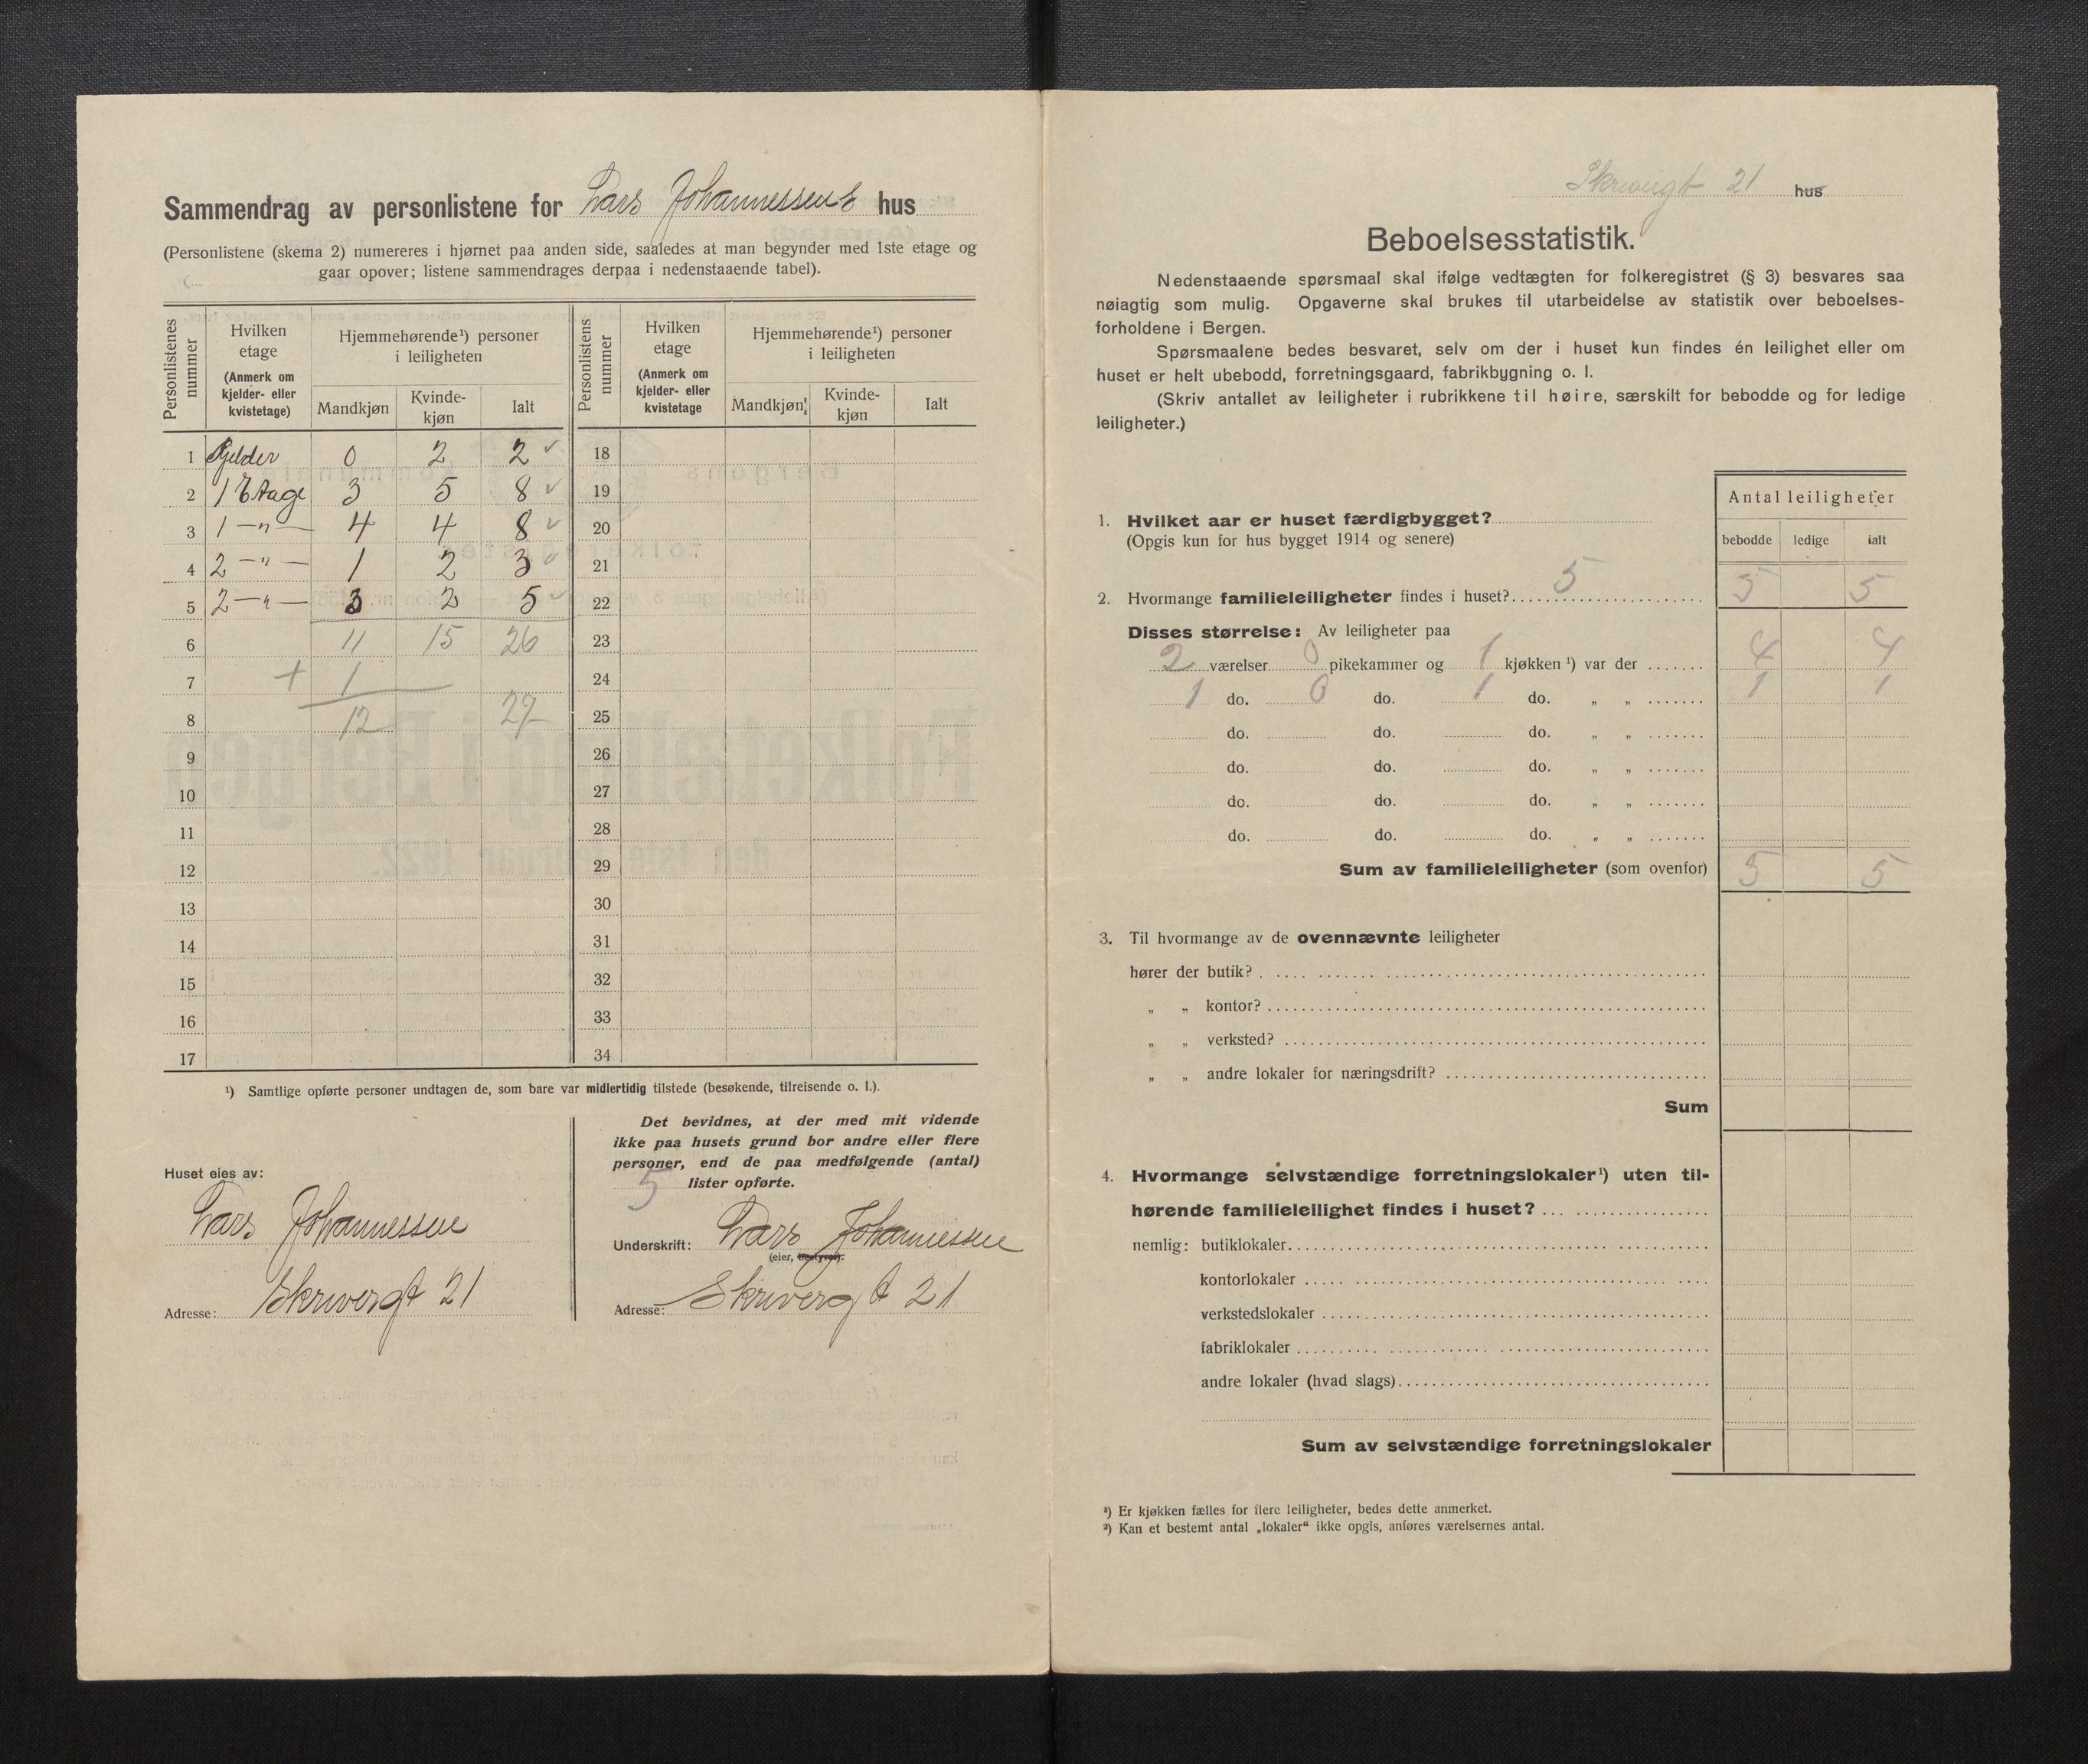 Sammendrag av personlistene for Lars Johannessens hus
(Personlistene (skema 2) numereres i hjørnet paa anden side, saaledes at man begynder med 1ste etage og
gaar opover; listene sammendrages derpaa i nedenstaaende tabel).
Personlistenes nummer | Hvilken etage (Anmerk om kjelder- eller kvistetage) | Hjemmehørende¹) personer i leiligheten | Mandkjøn | Kvinde-kjøn | Ialt
1 Kjelder 0 2 2 ✓
2 1 Etage 3 5 8 ✓
3 1 —"— 4 4 8 ✓
4 2 —"— 1 2 3 ✓
5 2 —"— 3 2 5 ✓
6 11 15 26
7 + 1
8 12 27
9
10
11
12
13
14
15
16
17
Personlistens nummer | Hvilken etage (Anmerk om kjelder- eller kvistetage | Hjemmehørende¹) personer i leiligheten | Mandkjøn | Kvinde-kjøn | Ialt
18
19
20
21
22
23
24
25
26
27
28
29
30
31
32
33
34
¹) Samtlige opførte personer undtagen de, som bare var midlertidig tilstede (besøkende, tilreisende o. l.).
Huset eies av:
Lars Johannessen
Adresse: Skrivergt 21
Det bevidnes, at der med mit vidende
ikke paa husets grund bor andre eller flere
personer, end de paa medfølgende (antal)
5 lister opførte.
Underskrift: Lars Johannessen
(eier, bestyrer).
Adresse: Skrivergt 21
Skrivergt 21 hus
Beboelsesstatistik.
Nedenstaaende spørsmaal skal ifølge vedtægten for folkeregistret (§ 3) besvares saa
nøiagtig som mulig. Opgaverne skal brukes til utarbeidelse av statistik over beboelses-
forholdene i Bergen.
Spørsmaalene bedes besvaret, selv om der i huset kun findes én leilighet eller om
huset er helt ubebodd, forretningsgaard, fabrikbygning o. l.
(Skriv antallet av leiligheter i rubrikkene til høire, særskilt for bebodde og for ledige
leiligheter.)
Antal leiligheter
bebodde ledige ialt
1. Hvilket aar er huset færdigbygget?
(Opgis kun for hus bygget 1914 og senere)
2. Hvormange familieleiligheter findes i huset? 5 5 5
Disses størrelse: Av leiligheter paa
2 værelser 0 pikekammer og 1 kjøkken ¹) var der 4 4
1 do. 0 do. 1 do. „ „ 1 1
do. do. do. „ „
do. do. do. „ „
do. do. do. „ „
do. do. do. „ „
Sum av familieleiligheter (som ovenfor) 5 5
3. Til hvormange av de ovennævnte leiligheter
hører der butik?
„ „ kontor?
„ „ verksted?
„ „ andre lokaler for næringsdrift?
Sum
4. Hvormange selvstændige forretningslokaler¹) uten til-
hørende familieleilighet findes i huset?
nemlig: butiklokaler
kontorlokaler
verkstedslokaler
fabriklokaler
andre lokaler (hvad slags)
Sum av selvstændige forretningslokaler
¹) Er kjøkken fælles for flere leiligheter, bedes dette anmerket.
²) Kan et bestemt antal „lokaler“ ikke opgis, anføres værelsernes antal.